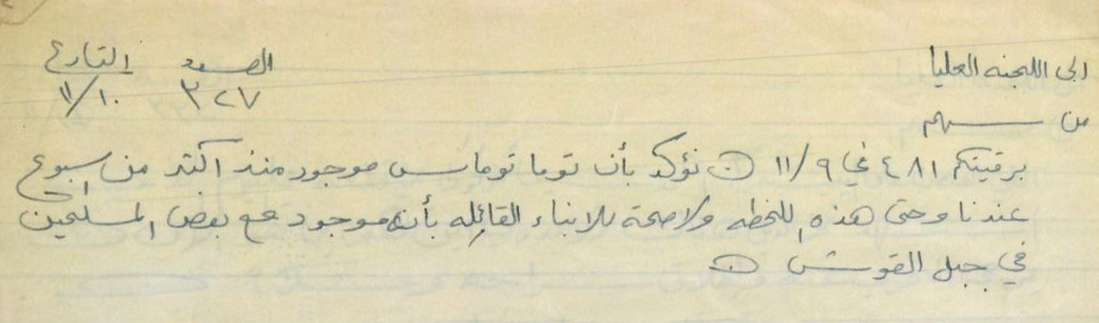 الى اللجنه العليا العدد التاريخ
٣٢٧ ١١/١٠
من سهم
برقيتكم ٤٨١ في ١١/٩ ⊙ نؤكد بأن توما توماس موجود منذ اكثر من اسبوع
عندنا وحتى هذه اللحظه ولاصحة للانباء القائله بأنه موجود مع بعض المسلحين
في جبل القوش ⊙